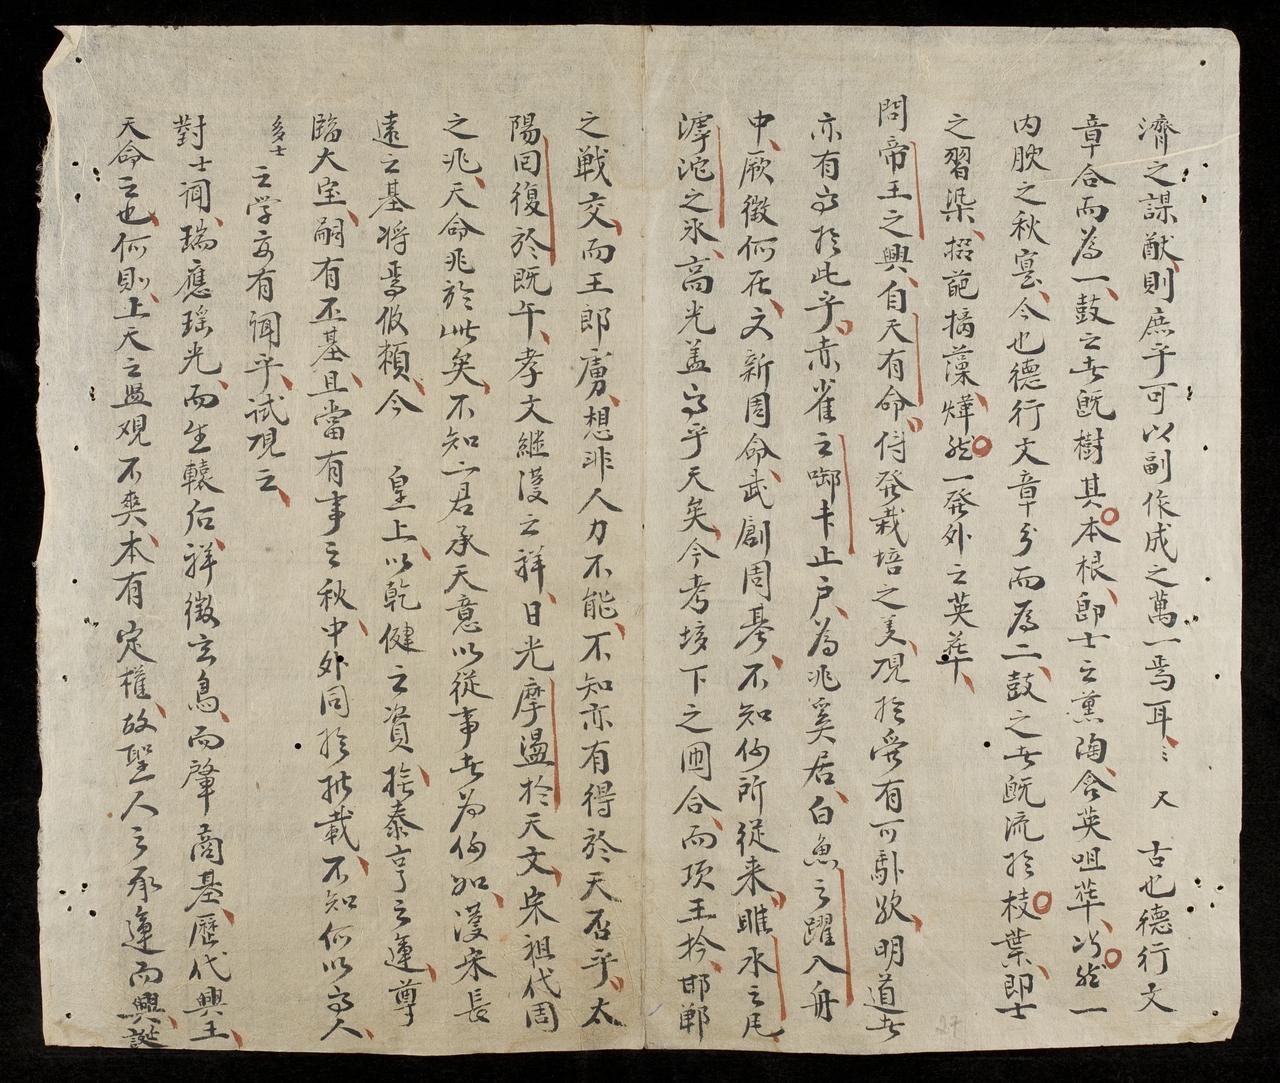 濟之謀猷則庶乎可以副作成之萬一焉耳〻 又 古也德行文
章合而為一鼓之者既樹其本根即士之薰陶含英咀華嵬然一
内腴之秋寔今也德行文章分而為二鼓之者既流於枝葉即士
之習染摺葩摘藻燁然一発外之英華
問帝王之興自天有命侍発栽培之美現於受有可馭欤明道者
亦有勾於此乎赤雀之啣书止户為兆奚居白魚之躍入舟
中厥徵何在文新周命武創周基不知何所従来睢水之厄
滹沱之氷高光盖勾乎天矣今考垓下之囲合而項王衿邯鄲
之戦交而王郎虜想非人力不能不知亦有得於天否乎太
陽囘復於既午孝文継漢之祥日光摩盪於天文宋祖代周
之兆天命兆於此矣不知二君承天意以従事者為何如漢宋長
遠之基将焉攸頼今 皇上以乾健之資撫泰亨之運尊
臨大宝嗣有丕基且當有事之秋中外同於推載不知何以勾人
多士之学玄有闻乎試現云
對士闻瑞應瑤光而生轅后祥徵玄鳥而肇商基歴代興王
天命之也何則上天之监观不爽本有定權故聖人之承運而興誕